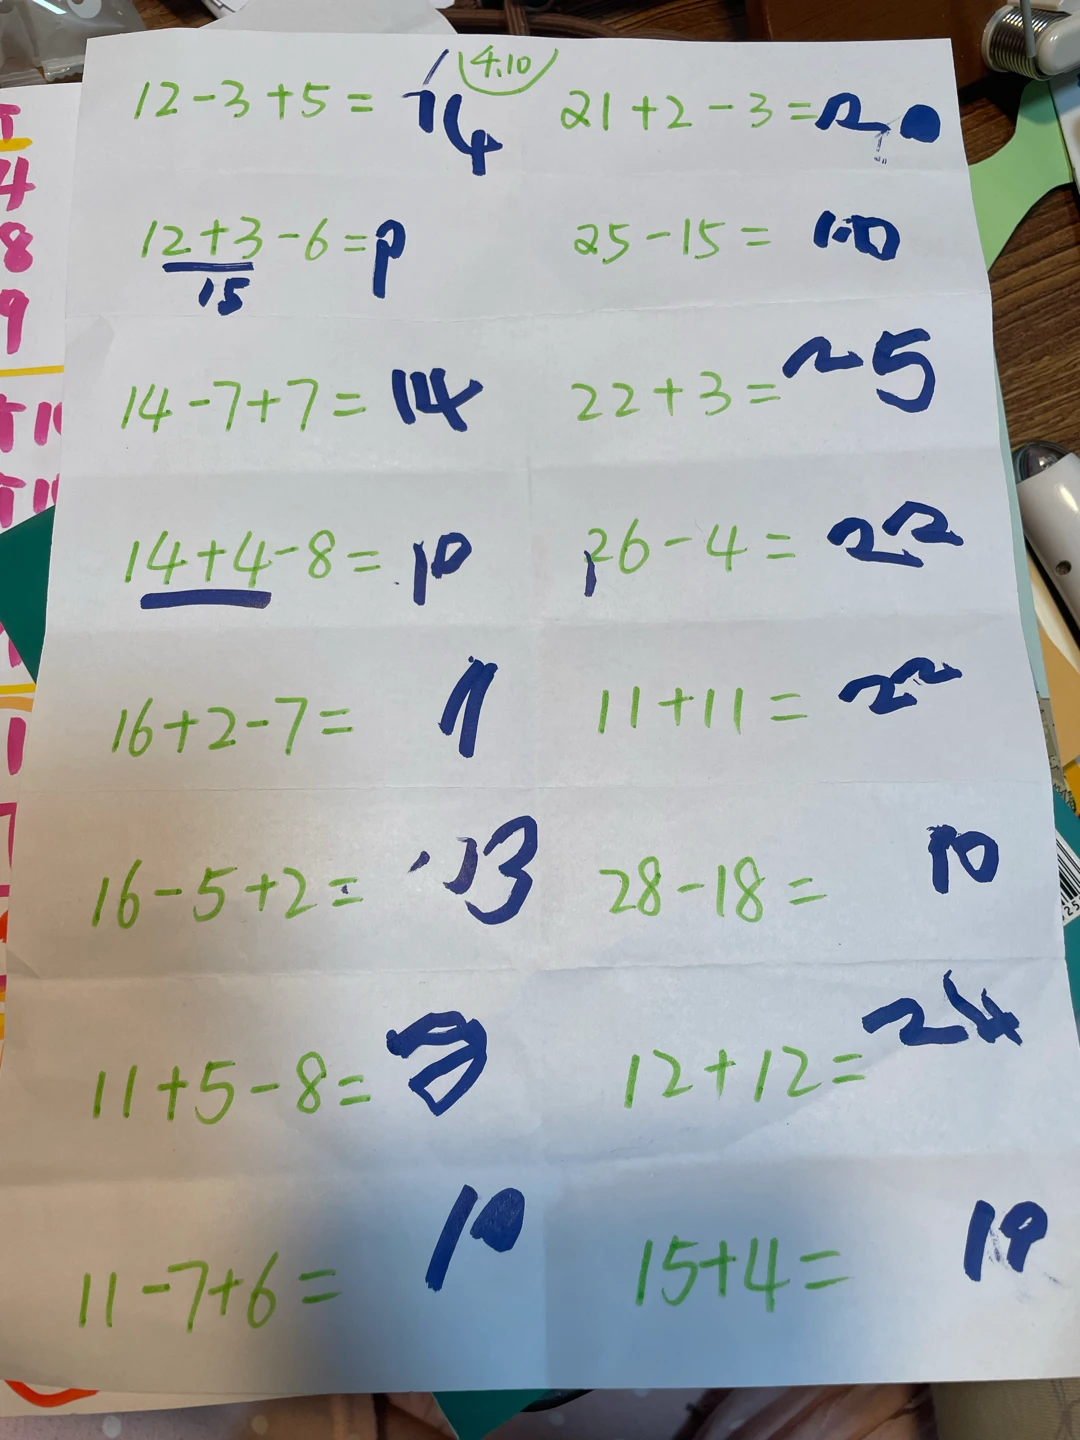 4.10
12-3+5= 14
21+2-3= 20
12+3-6= 9
15
25-15= 10
14-7+7= 14
22+3= 25
14+4-8= 10
26-4= 22
16+2-7= 11
11+11= 22
16-5+2= 13
28-18= 10
11+5-8= 8
12+12= 24
11-7+6= 10
15+4= 19